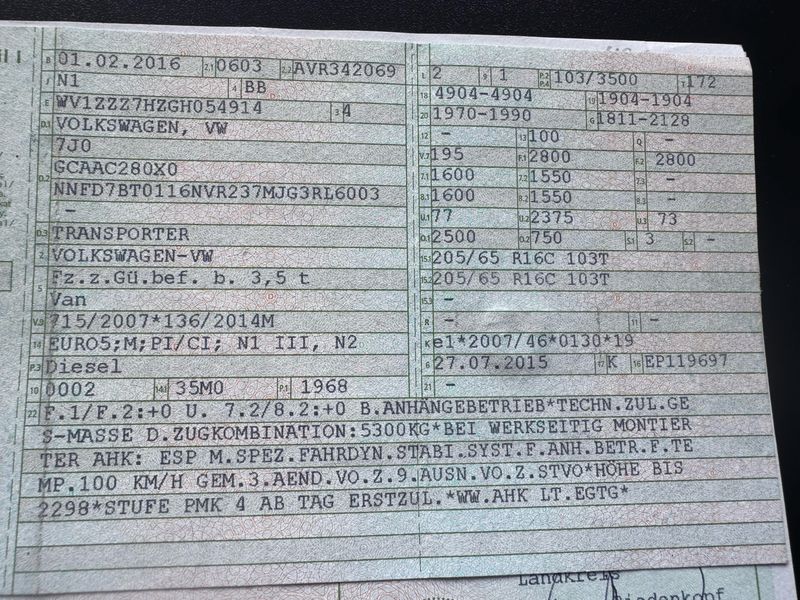 B 01.02.2016 2.1 0603 2.2 AVR342069
J N1 4 BB
E WV1ZZZ7HZGH054914 3 4
D.1 VOLKSWAGEN, VW
7J0
D.2 GCAAC280X0
NNFD7BT0116NVR237MJG3RL6003
-
D.3 TRANSPORTER
2 VOLKSWAGEN-VW
5 Fz.z.Gü.bef. b. 3,5 t
Van
V.9 715/2007*136/2014M
14 EURO5;M;PI/CI; N1 III, N2
P.3 Diesel
10 0002 14.1 35M0 P.1 1968
L 2 9 1 P.2 P.4 103/3500 T 172
18 4904-4904 19 1904-1904
20 1970-1990 G 1811-2128
12 - 13 100 Q -
V.7 195 F.1 2800 F.2 2800
7.1 1600 7.2 1550 7.3 -
8.1 1600 8.2 1550 8.3 -
U.1 77 U.2 2375 U.3 73
O.1 2500 O.2 750 S.1 3 S.2 -
15.1 205/65 R16C 103T
15.2 205/65 R16C 103T
15.3 -
R - 11 -
K e1*2007/46*0130*19
6 27.07.2015 17 K 16 EP119697
21 -
22 F.1/F.2:+0 U. 7.2/8.2:+0 B.ANHÄNGEBETRIEB*TECHN.ZUL.GE
S-MASSE D.ZUGKOMBINATION:5300KG*BEI WERKSEITIG MONTIER
TER AHK: ESP M.SPEZ.FAHRDYN.STABI.SYST.F.ANH.BETR.F.TE
MP.100 KM/H GEM.3.AEND.VO.Z.9.AUSN.VO.Z.STVO*HÖHE BIS
2298*STUFE PMK 4 AB TAG ERSTZUL.*WW.AHK LT.EGTG*
Landkreis